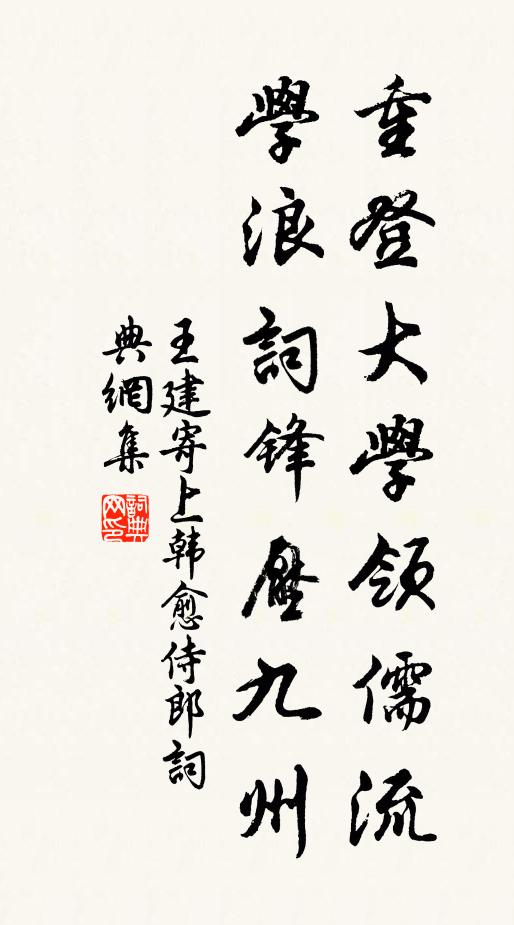 重登大學領儒流
學浪詞鋒壓九州
王建寄上韩愈侍郎詞
典網集
詞典网印